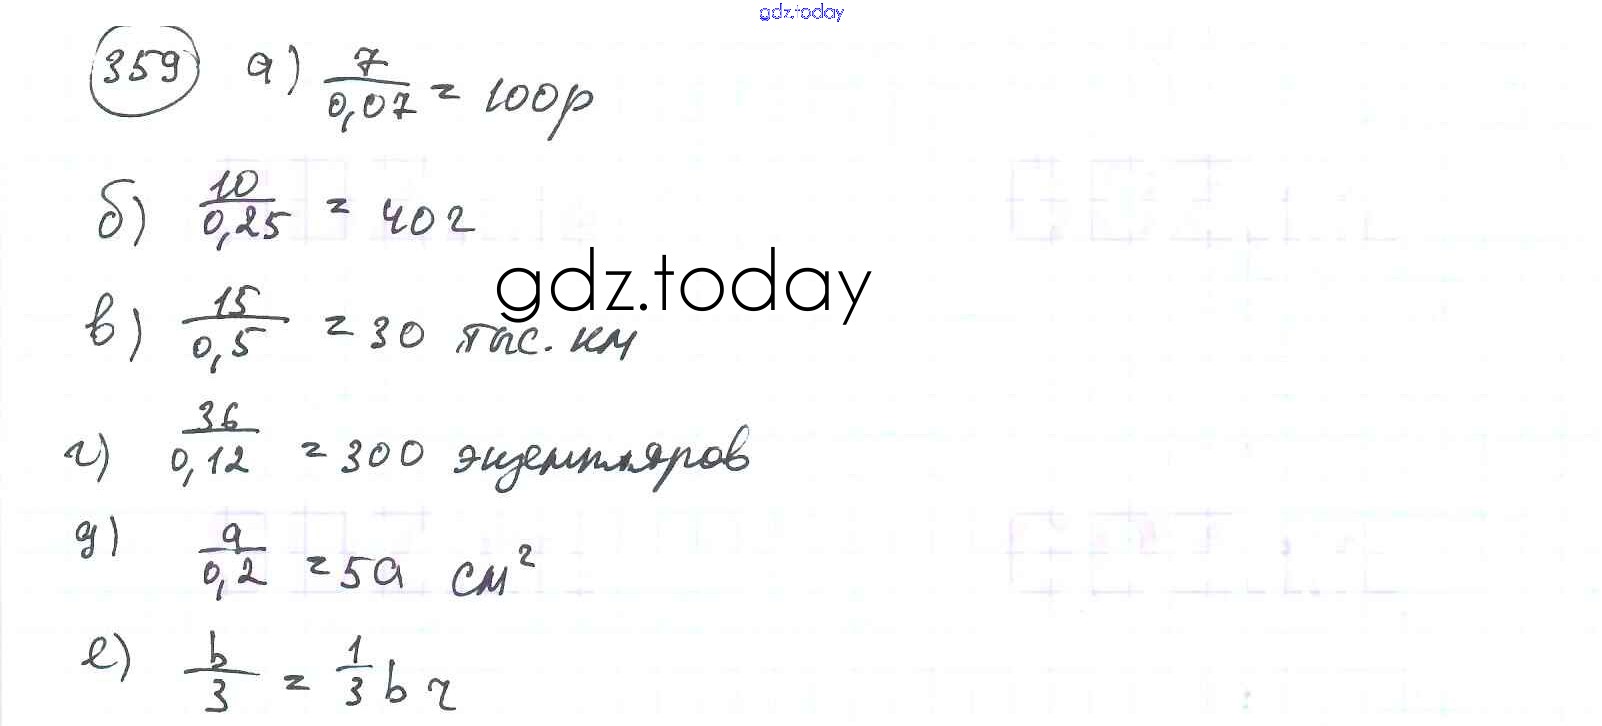 gdz.today
359 а) 7/0,07 = 100р
б) 10/0,25 = 40г
gdz.today
в) 15/0,5 = 30 тыс. км
г) 36/0,12 = 300 экземпляров
д) a/0,2 = 5a см²
е) b/3 = 1/3 b ч